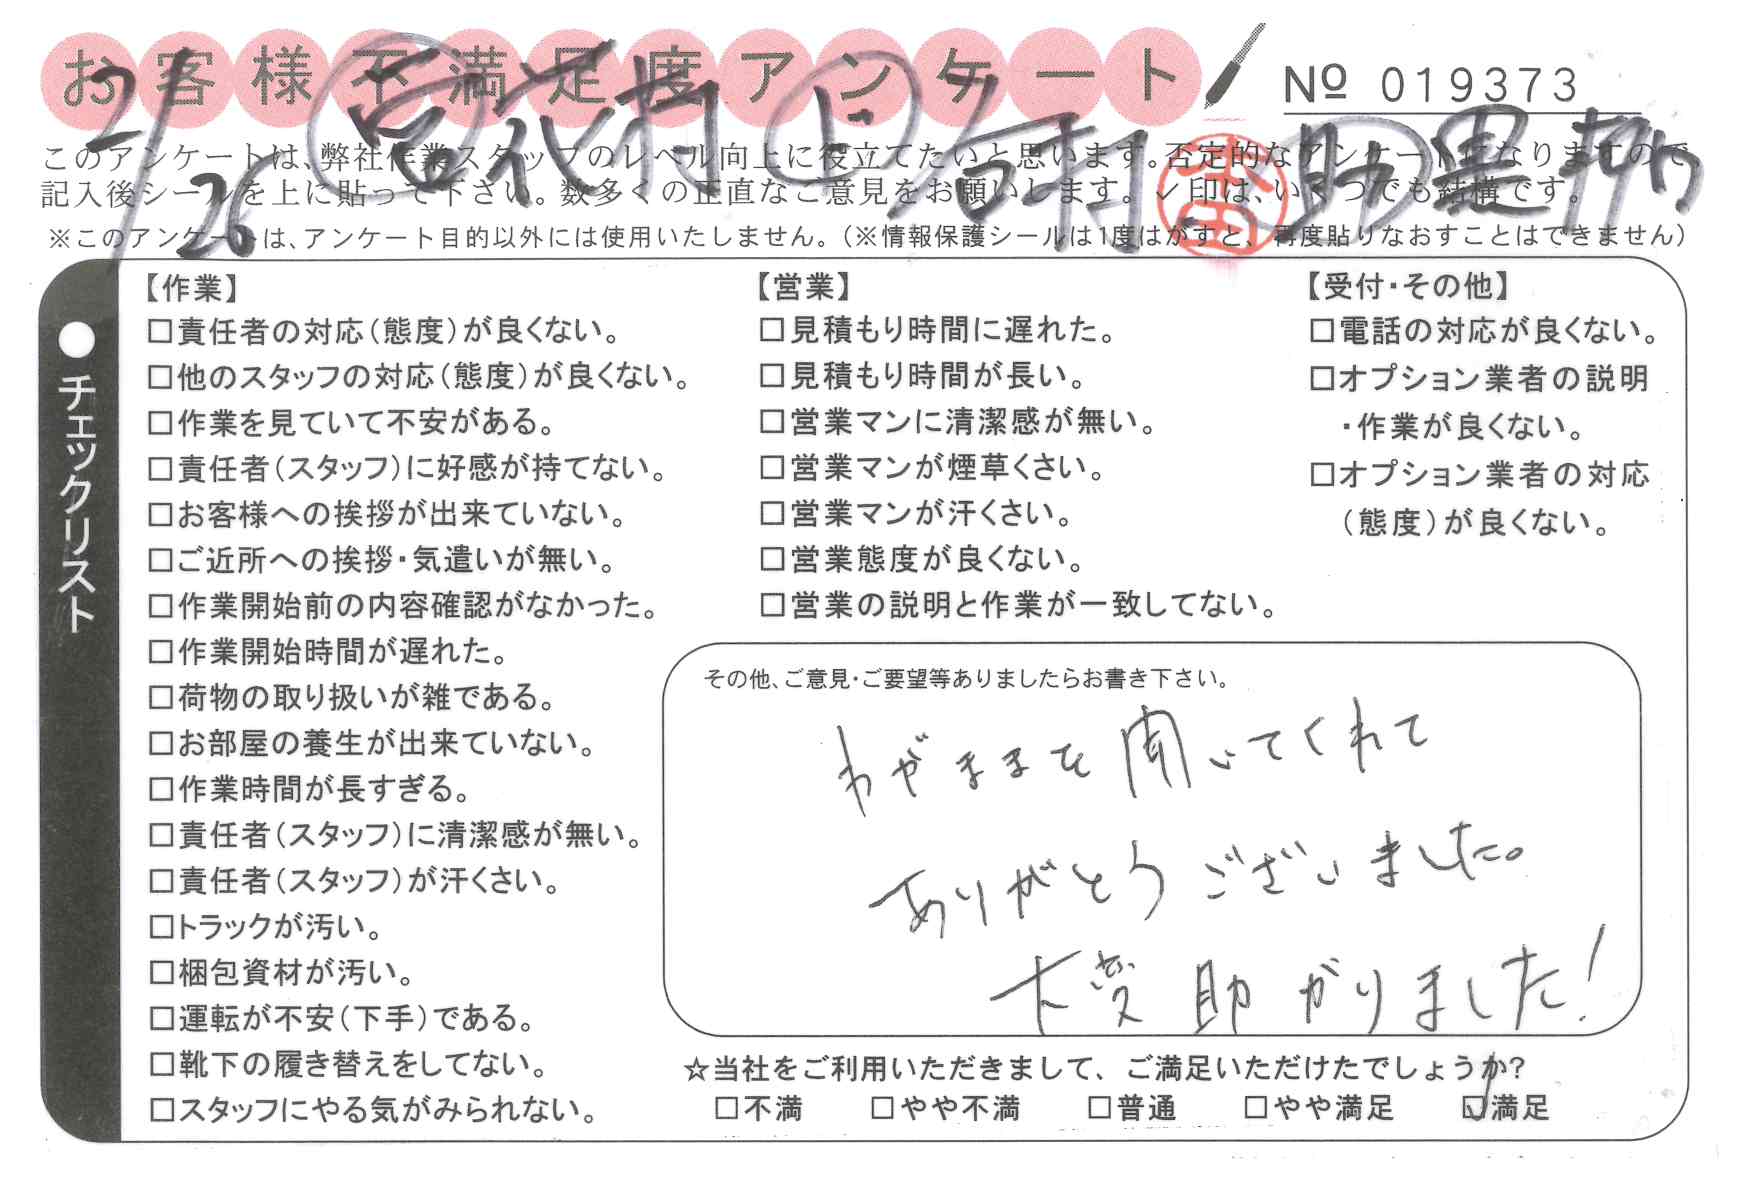 お客様不満足度アンケート
№ 019373
2/26
このアンケートは、弊社作業スタッフのレベル向上に役立てたいと思います。否定的なアンケートになりますので
記入後シールを上に貼って下さい。数多くの正直なご意見をお願いします。✓印は、いくつでも結構です。
※このアンケートは、アンケート目的以外には使用いたしません。（※情報保護シールは1度はがすと、再度貼りなおすことはできません）
●チェックリスト
【作業】
□責任者の対応（態度）が良くない。
□他のスタッフの対応（態度）が良くない。
□作業を見ていて不安がある。
□責任者（スタッフ）に好感が持てない。
□お客様への挨拶が出来ていない。
□ご近所への挨拶・気遣いが無い。
□作業開始前の内容確認がなかった。
□作業開始時間が遅れた。
□荷物の取り扱いが雑である。
□お部屋の養生が出来ていない。
□作業時間が長すぎる。
□責任者（スタッフ）に清潔感が無い。
□責任者（スタッフ）が汗くさい。
□トラックが汚い。
□梱包資材が汚い。
□運転が不安（下手）である。
□靴下の履き替えをしてない。
□スタッフにやる気がみられない。
【営業】
□見積もり時間に遅れた。
□見積もり時間が長い。
□営業マンに清潔感が無い。
□営業マンが煙草くさい。
□営業マンが汗くさい。
□営業態度が良くない。
□営業の説明と作業が一致してない。
【受付・その他】
□電話の対応が良くない。
□オプション業者の説明
・作業が良くない。
□オプション業者の対応
（態度）が良くない。
その他、ご意見・ご要望等ありましたらお書き下さい。
わがままを聞いてくれて
ありがとうございました。
大変助かりました!
☆当社をご利用いただきまして、ご満足いただけたでしょうか?
□不満 □やや不満 □普通 □やや満足 ☑満足